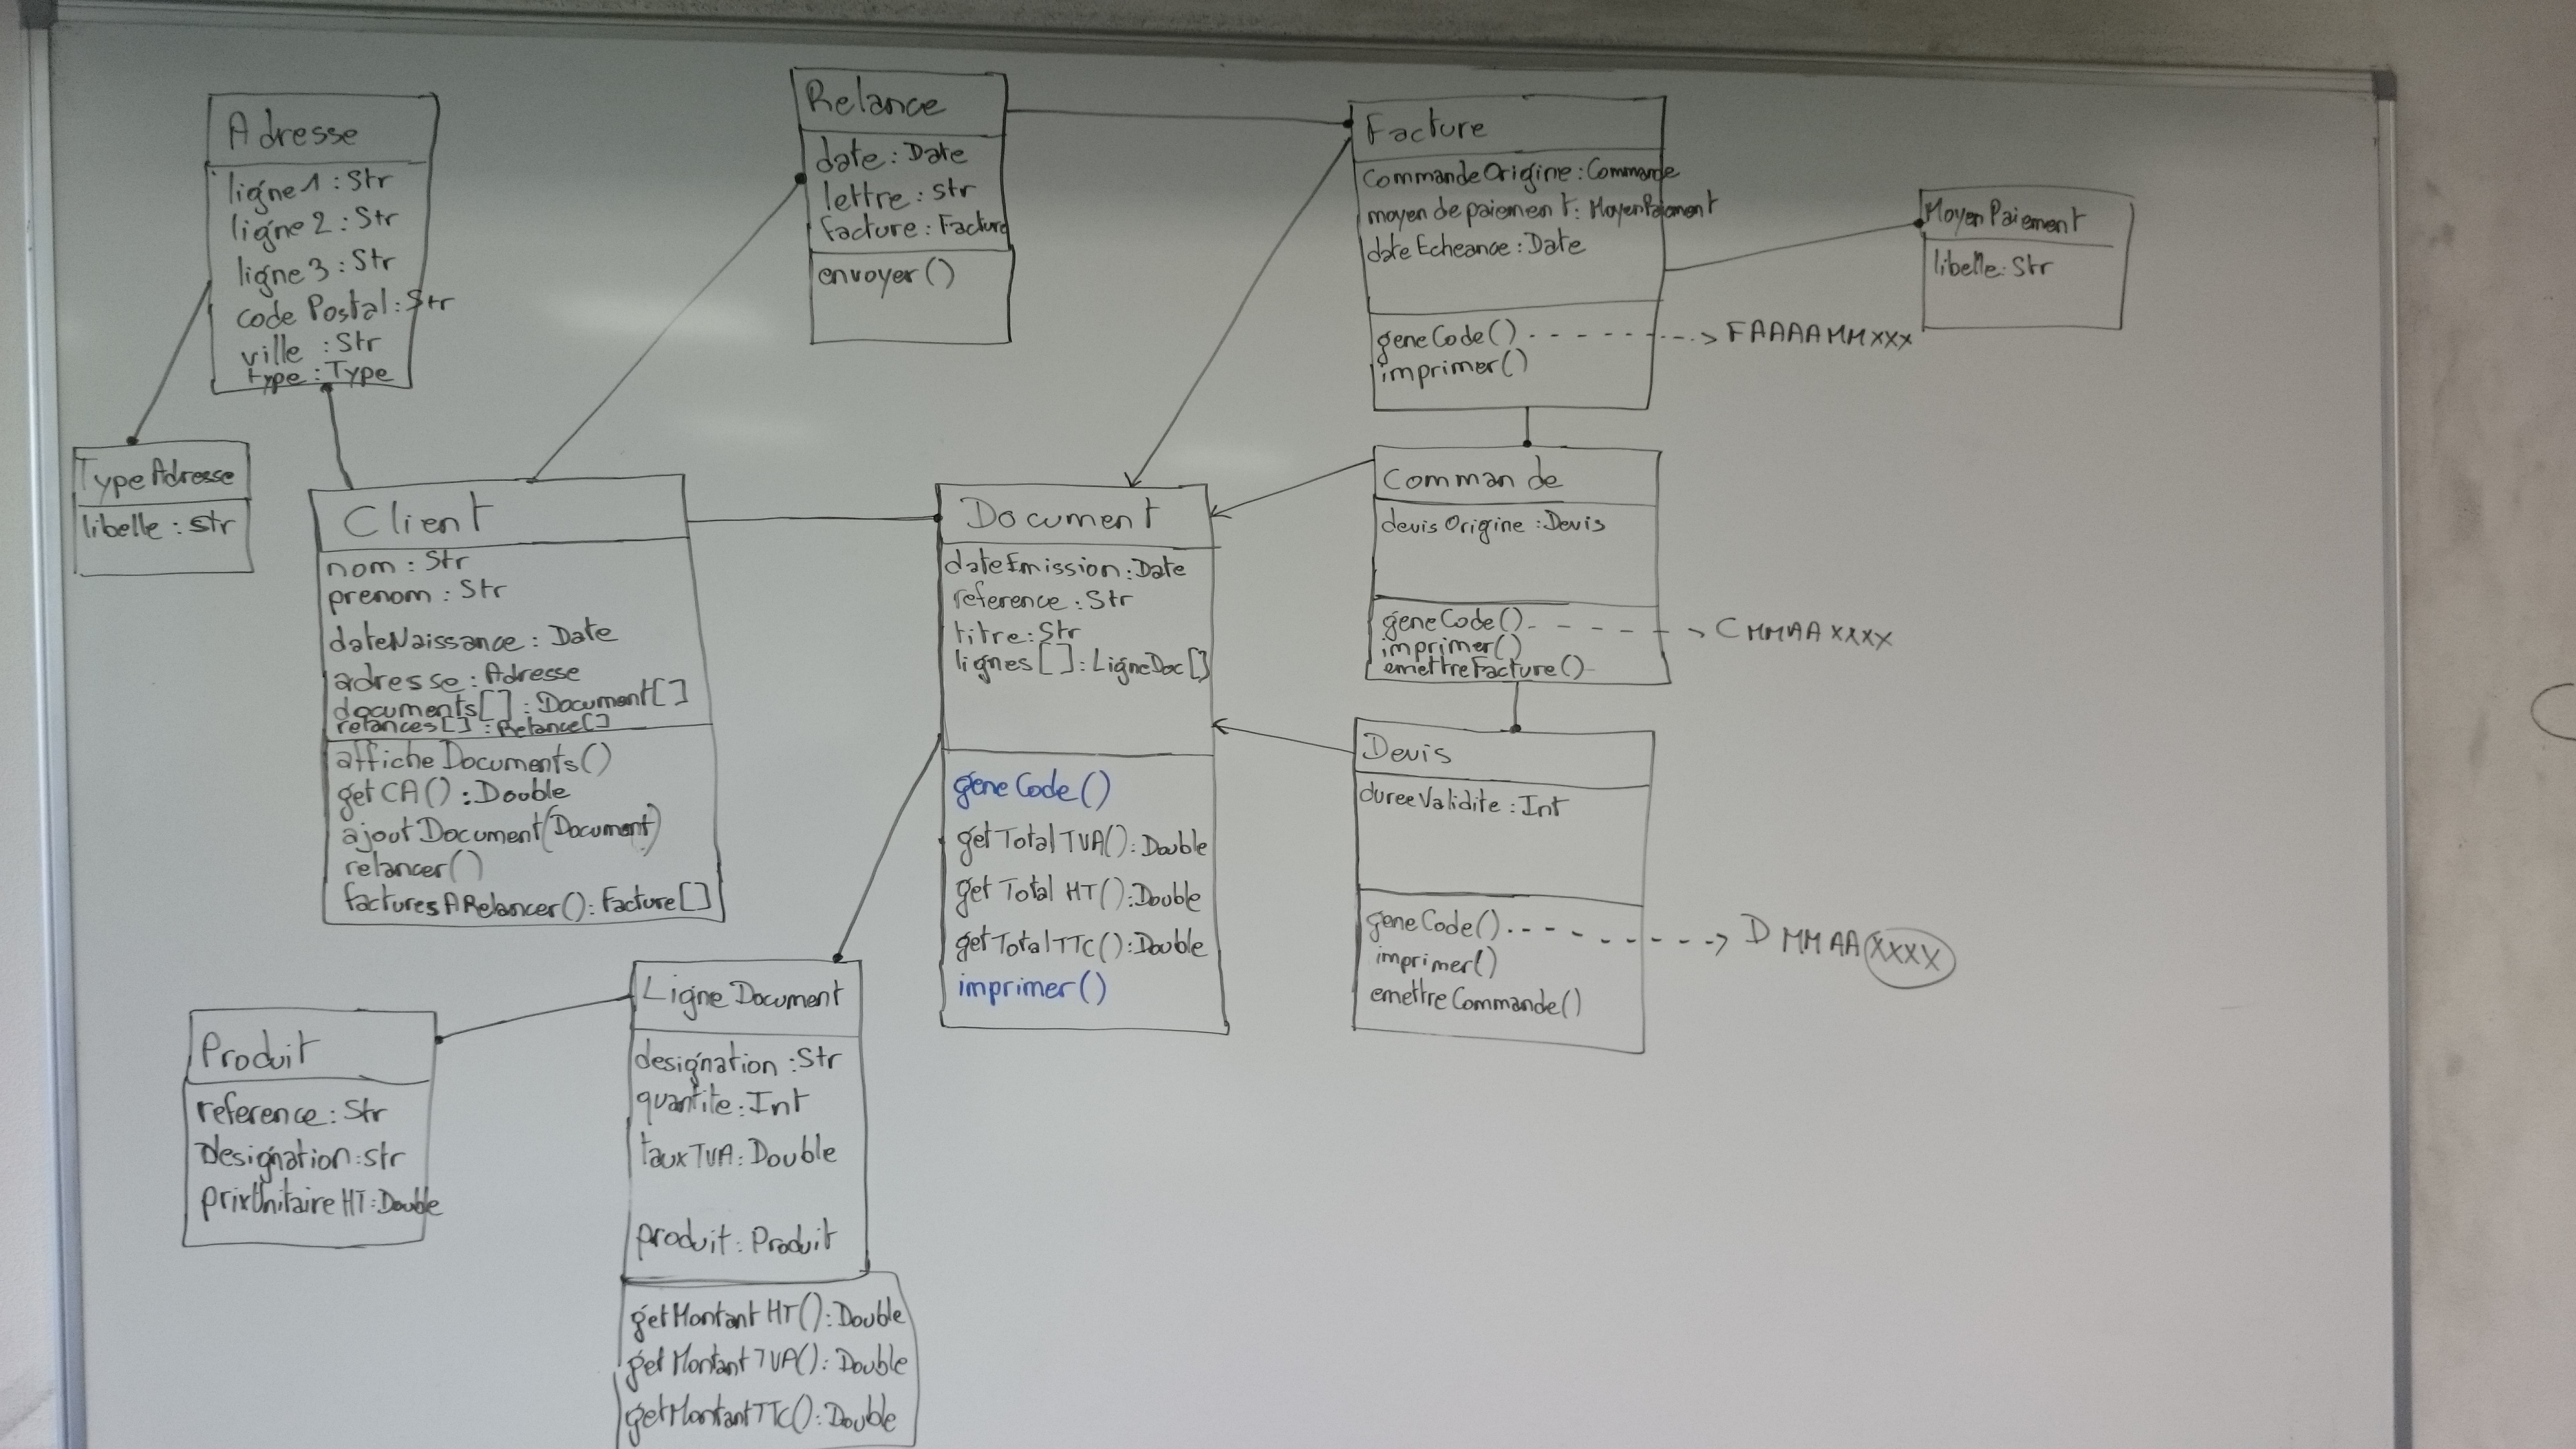 Adresse
ligne1 : Str
ligne2 : Str
ligne3 : Str
code Postal : Str
ville : Str
type : Type
TypeAdresse
libelle : Str
Relance
date : Date
lettre : Str
facture : Facture
envoyer()
Facture
commandeOrigine : Commande
moyen de paiement : MoyenPaiement
dateEcheance : Date
geneCode() - - - - - -> FAAAAMMXXX
imprimer()
MoyenPaiement
libelle : Str
Client
nom : Str
prenom : Str
dateNaissance : Date
adresse : Adresse
documents[] : Document[]
relances[] : Relance[]
afficheDocuments()
getCA() : Double
ajoutDocument(Document)
relancer()
facturesARelancer() : Facture[]
Document
dateEmission : Date
reference : Str
titre : Str
lignes[] : LigneDoc[]
geneCode()
getTotalTVA() : Double
getTotalHT() : Double
getTotalTTC() : Double
imprimer()
Commande
devisOrigine : Devis
geneCode() - - - - -> CMMAAXXXX
imprimer()
emettreFacture()
Devis
dureeValidite : Int
geneCode() - - - - - - -> DMMAAXXXX
imprimer()
emettreCommande()
Produit
reference : Str
Designation : Str
prixUnitaireHT : Double
LigneDocument
designation : Str
quantite : Int
tauxTVA : Double
produit : Produit
getMontantHT() : Double
getMontantTVA() : Double
getMontantTTC() : Double